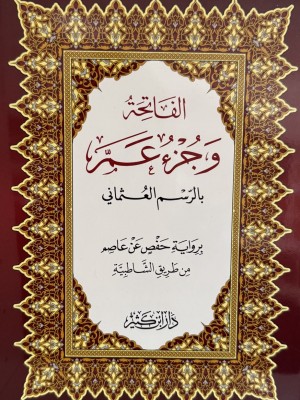 الفَاتِحَةُ
وَجُزْءُ عَمَّ
بالرَّسْمِ العُثْمَاني
بِرِوَايَةِ حَفْصٍ عَنْ عَاصِم
مِنْ طَرِيقِ الشَّاطِبِيَّةِ
دَارُ ابْنِ كَثِيْرٍ